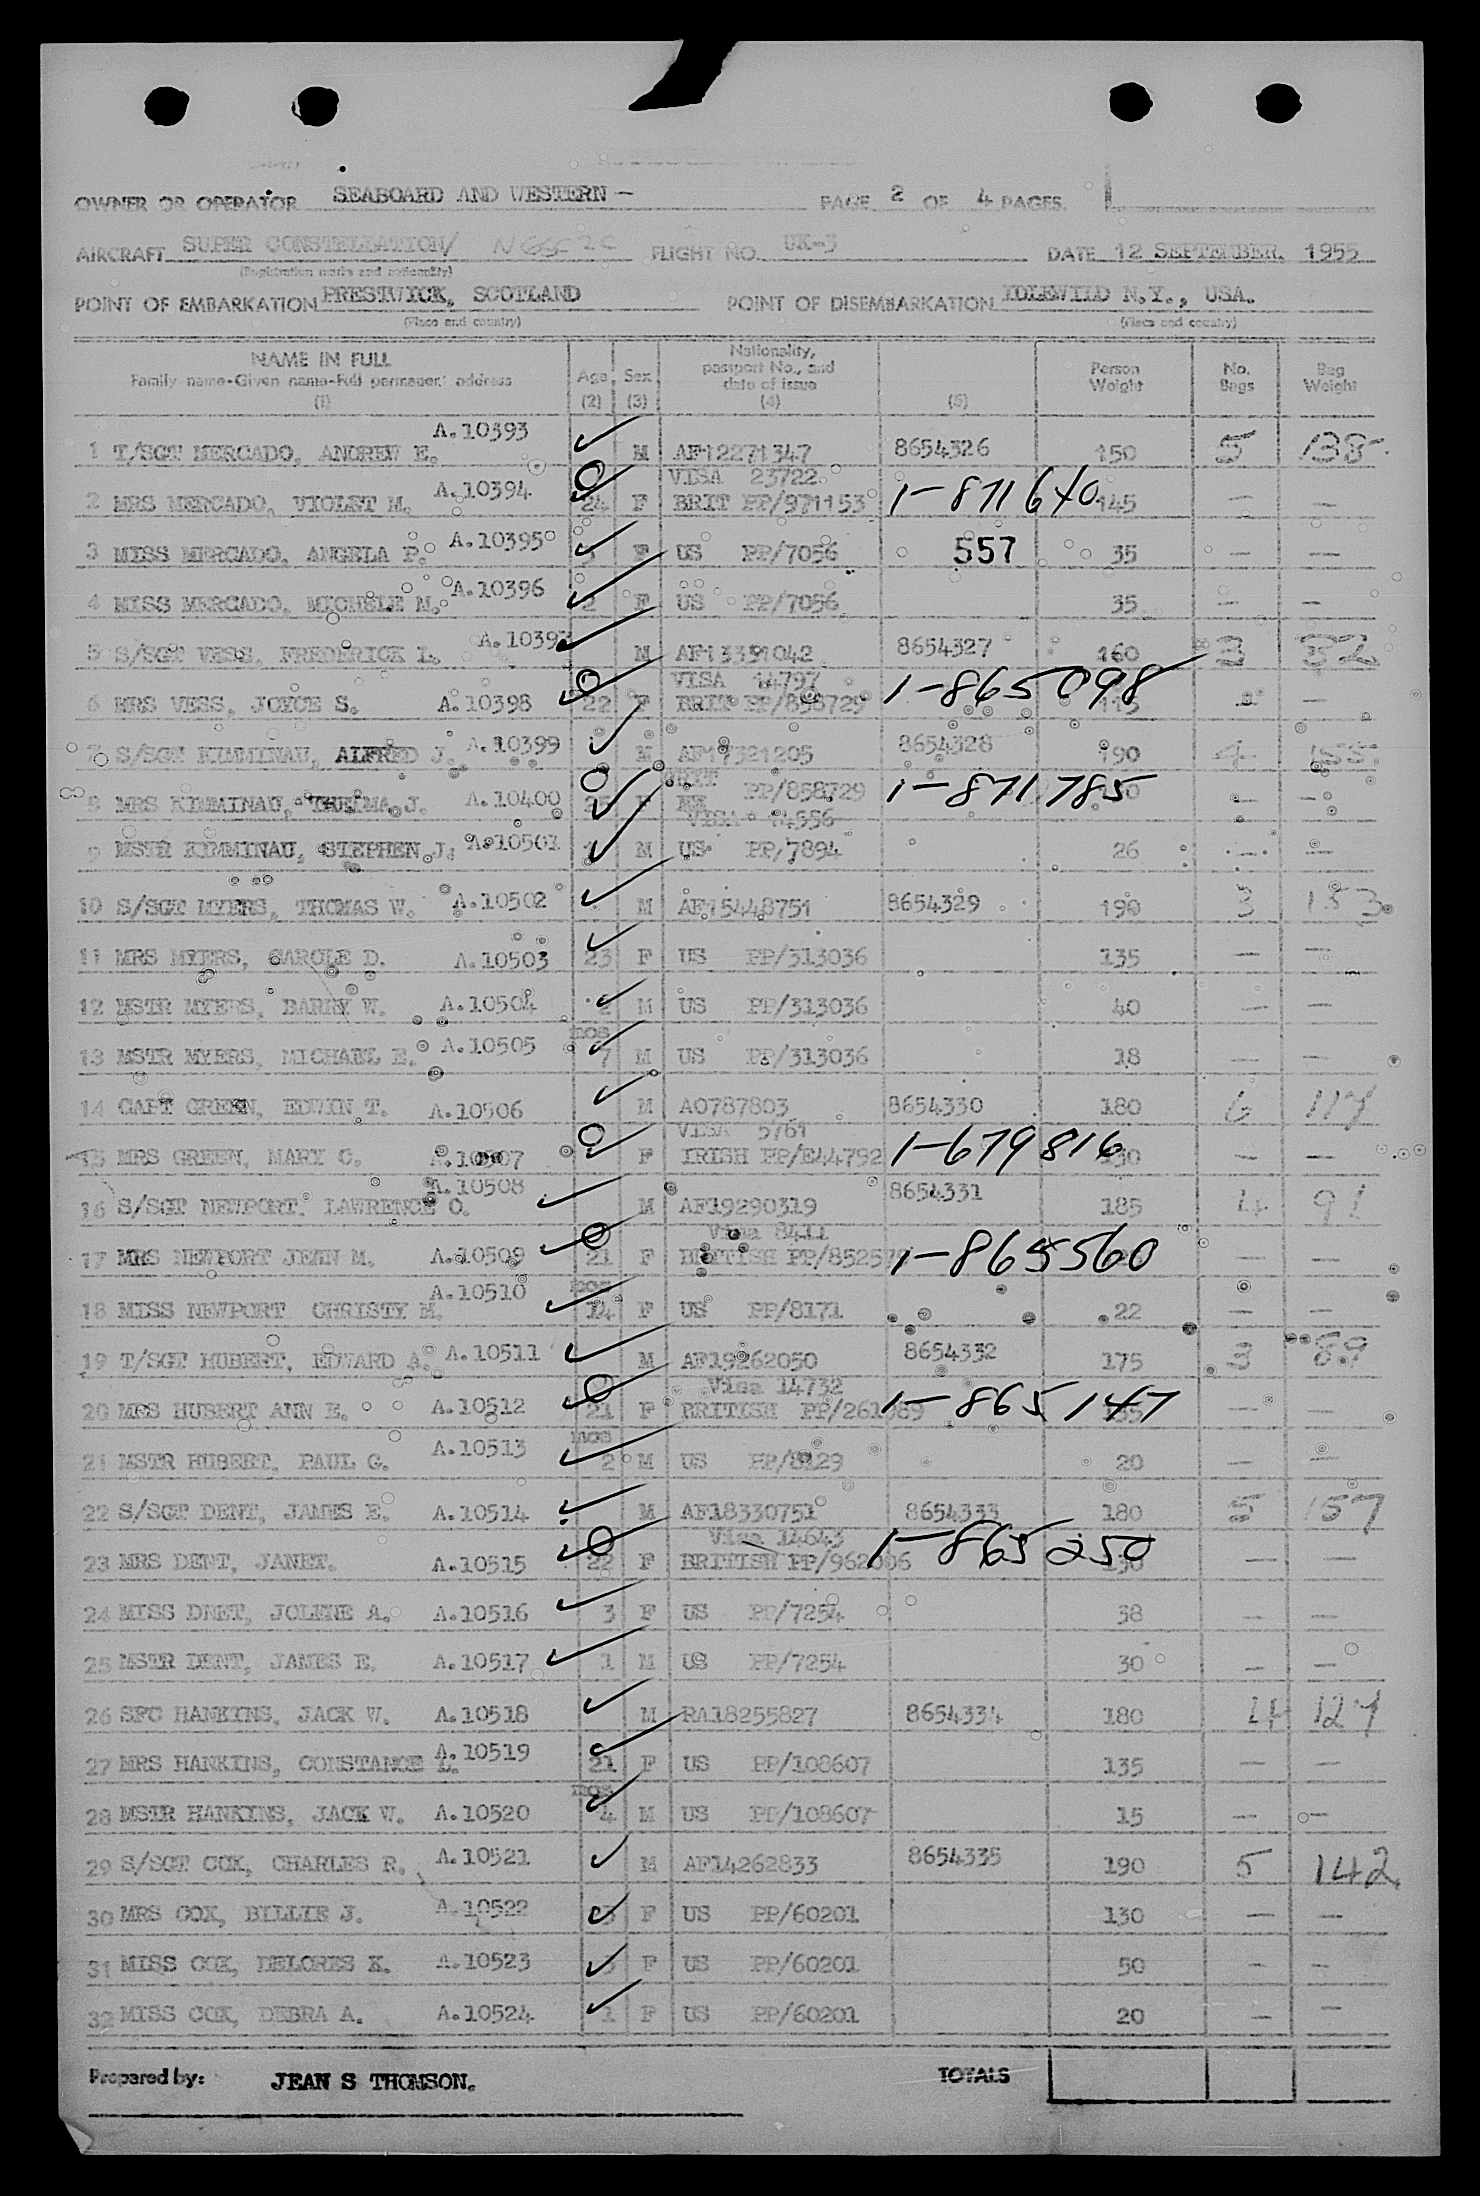 OWNER OR OPERATOR SEABOARD AND WESTERN - PAGE 2 OF 4 PAGES
AIRCRAFT SUPER CONSTELLATION/ FLIGHT NO. UK-3 DATE 12 SEPTEMBER, 1955
(Registration marks and nationality)
POINT OF EMBARKATION PRESTWICK, SCOTLAND POINT OF DISEMBARKATION IDLEWILD N.Y., USA.
(Place and country) (Place and country)
NAME IN FULL Family name-Given name-Full permanent address (1) Age (2) Sex (3) Nationality, passport No., and date of issue (4) (5) Person Weight No. Bags Bag Weight
A.10393
1 T/SGT MERCADO, ANDREW E. M AF12271347 8654326 150 5 138
VISA 23722
2 MRS MERCADO, VIOLET M. A.10394 24 F BRIT PP/971153 1-871640 145 — —
3 MISS MERCADO, ANGELA P. A.10395 F US PP/7056 557 35 — —
4 MISS MERCADO, MICHELE M. A.10396 2 F US PP/7056 35 — —
5 S/SGT VESS, FREDERICK L. A.10397 M AF13351042 8654327 160 3 32
VISA 14797
6 MRS VESS, JOYCE S. A.10398 22 F BRIT PP/858729 1-865098 115 — —
7 S/SGT KIMMINAU, ALFRED J. A.10399 M AF17321205 8654328 190 4 155
8 MRS KIMMINAU, THELMA J. A.10400 F BRIT PP/858729 1-871785 — —
VISA 14556
9 MSTR KIMMINAU, STEPHEN J. A.10501 M US PP/7894 26 — —
10 S/SGT MYERS, THOMAS W. A.10502 M AF15448751 8654329 190 3 133
11 MRS MYERS, CAROLE D. A.10503 23 F US PP/313036 135 — —
12 MSTR MYERS, BARRY W. A.10504 2 M US PP/313036 40 — —
MOS
13 MSTR MYERS, MICHAEL E. A.10505 7 M US PP/313036 18 — —
14 CAPT GREEN, EDWIN T. A.10506 M AO787803 8654330 180 6 117
VISA 5761
15 MRS GREEN, MARY C. A.10507 F IRISH PP/E44792 1-679816 130 — —
A.10508
16 S/SGT NEWPORT, LAWRENCE O. M AF19290319 8654331 185 4 91
Visa 8411
17 MRS NEWPORT JEAN M. A.10509 21 F BRITISH PP/85257 1-865560 — —
A.10510 MOS
18 MISS NEWPORT CHRISTY M. 14 F US PP/8171 22 — —
19 T/SGT HUBERT, EDWARD A. A.10511 M AF19262050 8654332 175 3 89
Visa 14732
20 MRS HUBERT ANN E. A.10512 21 F BRITISH PP/261989 1-865147 135 — —
MOS
21 MSTR HUBERT, PAUL G. A.10513 2 M US PP/8129 20 — —
22 S/SGT DENT, JAMES E. A.10514 M AF18330751 8654333 180 5 157
Visa 14643
23 MRS DENT, JANET. A.10515 22 F BRITISH PP/962006 1-865250 130 — —
24 MISS DNET, JOLENE A. A.10516 3 F US PP/7254 38 — —
25 MSTR DENT, JAMES E. A.10517 1 M US PP/7254 30 — —
26 SFC HANKINS, JACK W. A.10518 M RA18255827 8654334 180 4 127
27 MRS HANKINS, CONSTANCE L. A.10519 21 F US PP/108607 135 — —
MOS
28 MSTR HANKINS, JACK W. A.10520 4 M US PP/108607 15 — —
29 S/SGT COX, CHARLES R. A.10521 M AF14262833 8654335 190 5 142
30 MRS COX, BILLIE J. A.10522 F US PP/60201 130 — —
31 MISS COX, DELORES K. A.10523 F US PP/60201 50 — —
32 MISS COX, DEBRA A. A.10524 1 F US PP/60201 20 — —
Prepared by: JEAN S THOMSON. TOTALS